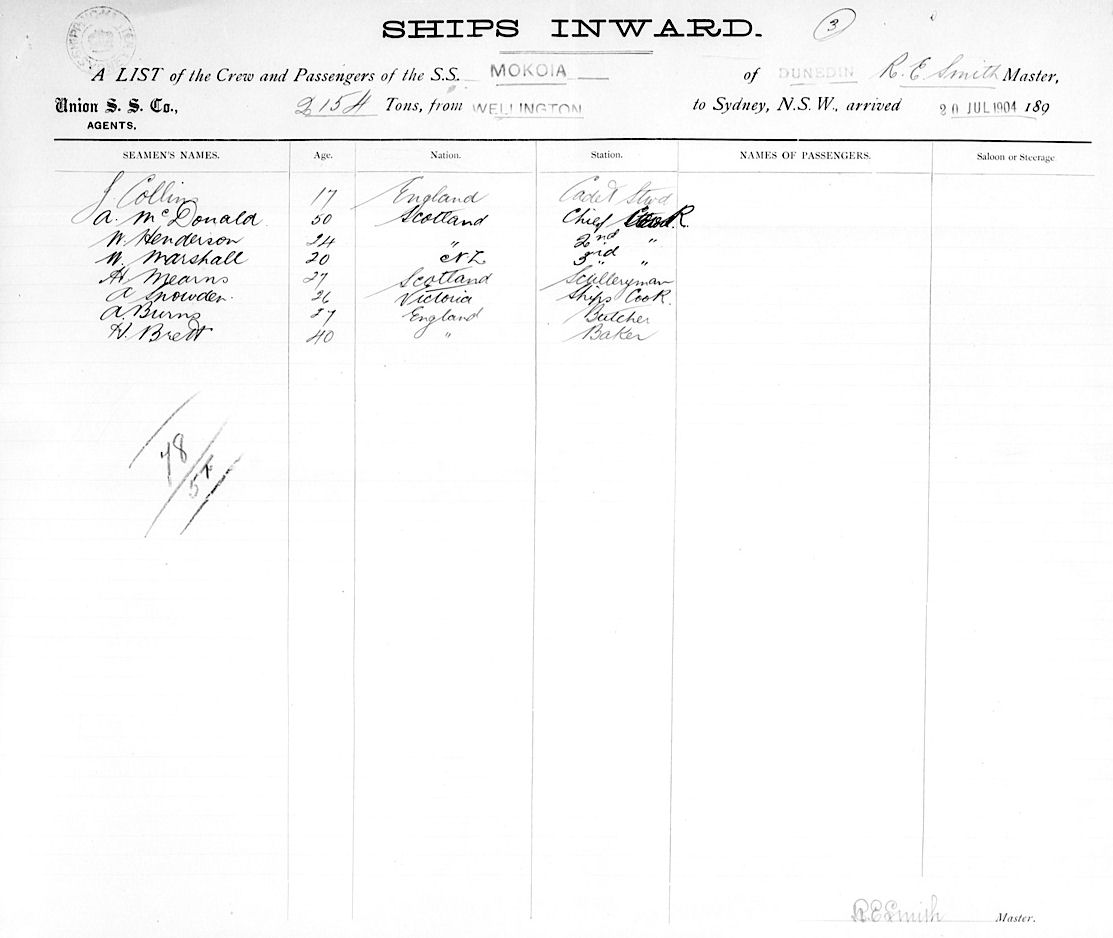 SHIPS INWARD.
3
A LIST of the Crew and Passengers of the S.S. MOKOIA of DUNEDIN R. E. Smith Master,
Union S. S. Co., 2154 Tons, from WELLINGTON to Sydney, N.S.W., arrived 20 JUL 1904 189
AGENTS,
SEAMEN'S NAMES. Age. Nation. Station. NAMES OF PASSENGERS. Saloon or Steerage
J. Collins 17 England Cadet Stwd
A. McDonald 50 Scotland Chief Cook.
W. Henderson 24 " 2nd "
W. Marshall 20 NZ 3rd "
H Mearns 27 Scotland Sculleryman
A Snowden. 26 Victoria Ships Cook.
A. Burns 27 England Butcher
H. Brett 40 " Baker
78
54
R E Smith Master.